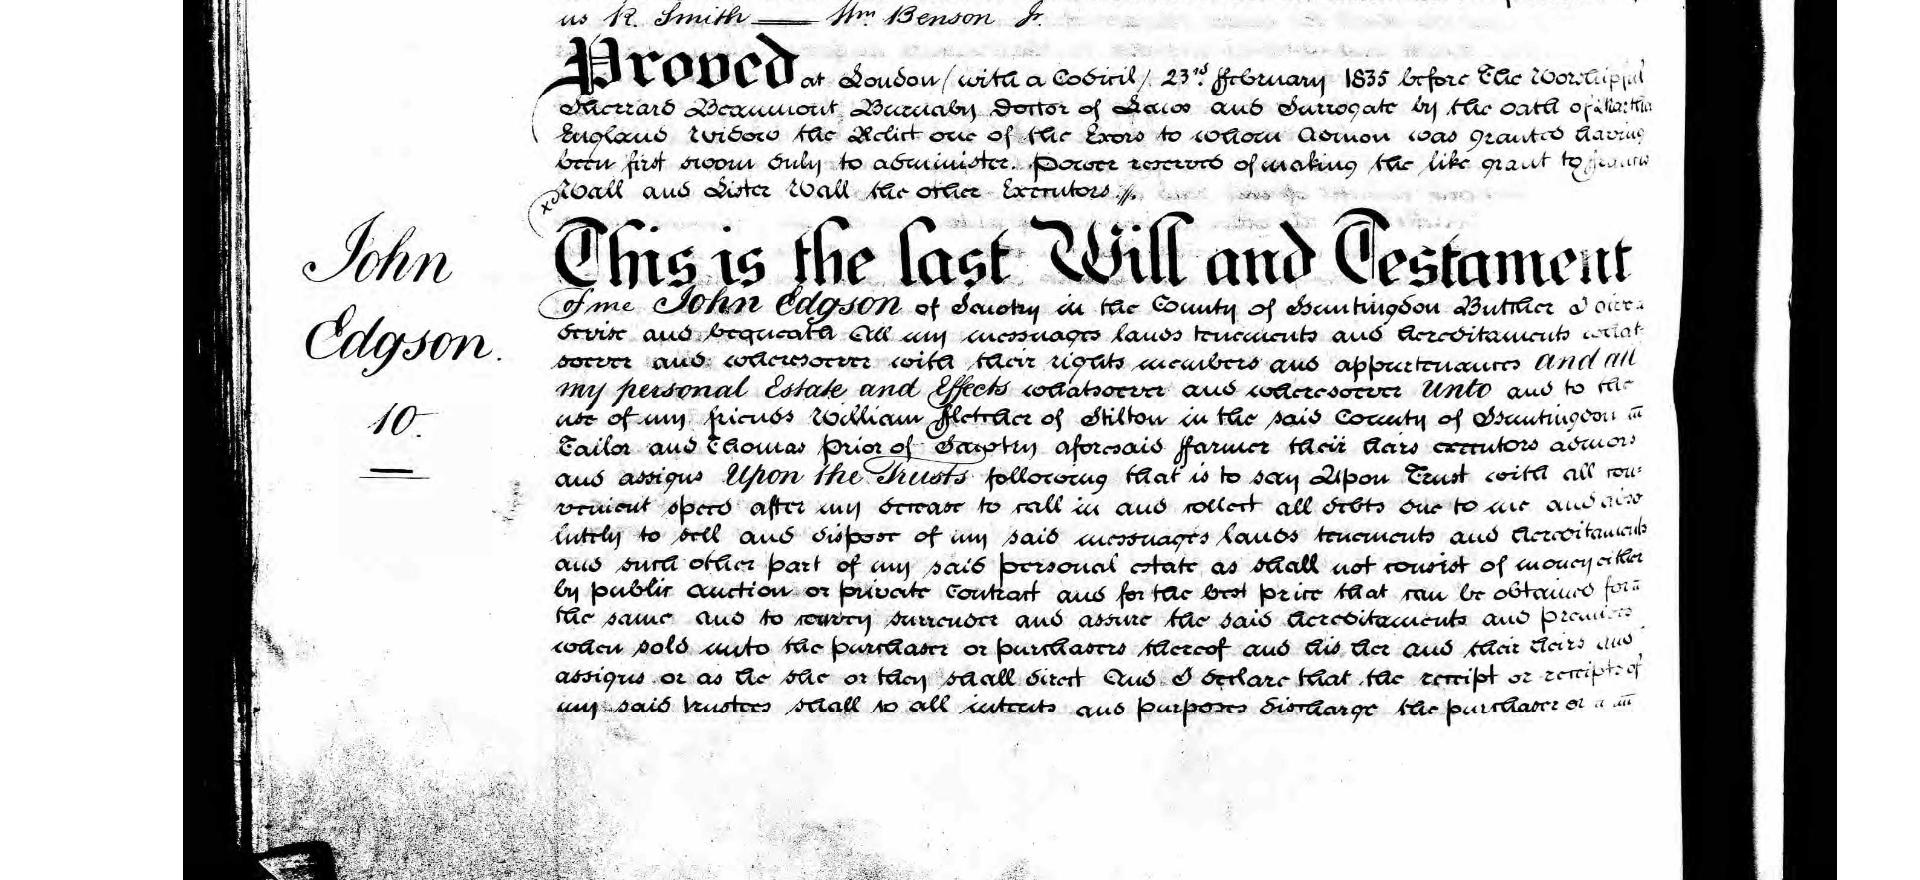 us R. Smith —— Wm Benson Jr.
Proved at London (with a Codicil) 23rd ffebruary 1835 before The Worshipful
Sherrard Beaumont Burnaby Doctor of Laws and Surrogate by the oath of Martha
England Widow the Relict one of the Exors to whom Admon was granted having
been first sworn duly to administer. Power reserved of making the like grant to
Wall and Lister Wall the other Executors.
This is the last Will and Testament
John
of me John Edgson of Sawtry in the County of Huntingdon Butcher I give
Edgson.
devise and bequeath All my messuages lands tenements and hereditaments what
soever and wheresoever with their rights members and appurtenances and all
my personal Estate and Effects whatsoever and wheresoever Unto and to the
10.
use of my friends William ffletcher of Stilton in the said County of Huntingdon
Tailor and Thomas Prior of Sawtry aforesaid ffarmer their heirs executors admors
and assigns Upon the Trusts following that is to say Upon Trust with all con:
venient speed after my decease to call in and collect all debts due to me and abso
lutely to sell and dispose of my said messuages lands tenements and hereditaments
and such other part of my said personal estate as shall not consist of money either
by public Auction or private Contract and for the best price that can be obtained for
the same and to convey surrender and assure the said hereditaments and premises
when sold unto the purchaser or purchasers thereof and his her and their heirs and
assigns or as he she or they shall direct And I declare that the receipt or receipts of
my said trustees shall to all intents and purposes discharge the purchaser or